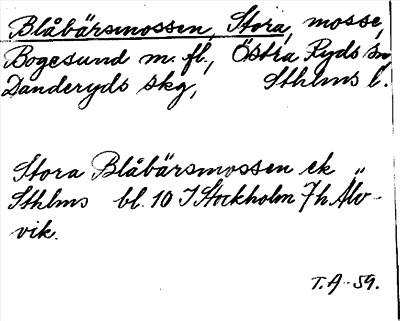 Blåbärsmossen, Stora, mosse,
Bogesund m. fl., Östra Ryds sn,
Danderyds skg, Sthlms l.
Stora Blåbärsmossen ek
Sthlms bl. 10 I Stockholm 7h Älv-
vik.
T.A-59.